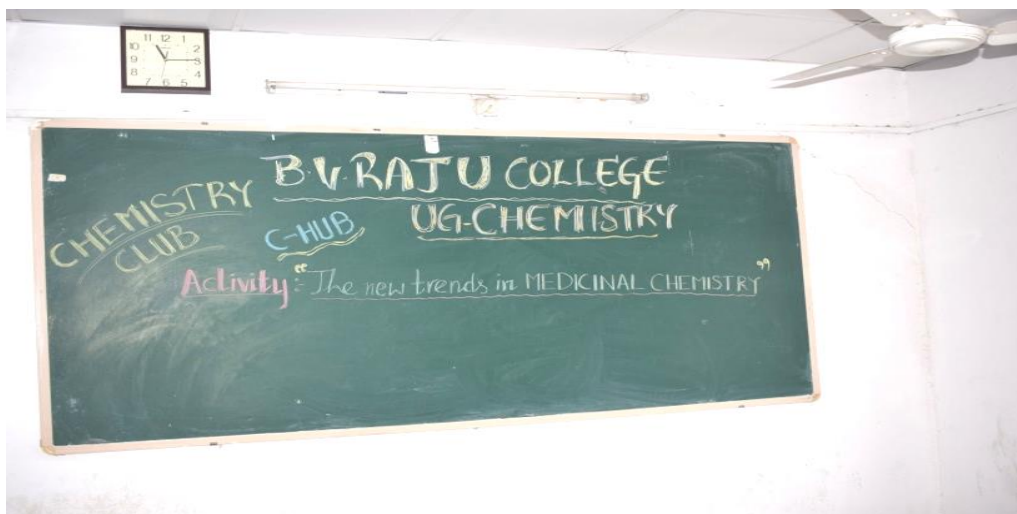 11 12 1
10 2
9 3
8 4
7 6 5
B.V.RAJU COLLEGE
CHEMISTRY
CLUB
C-HUB
UG-CHEMISTRY
Activity:- "The new trends in MEDICINAL CHEMISTRY"